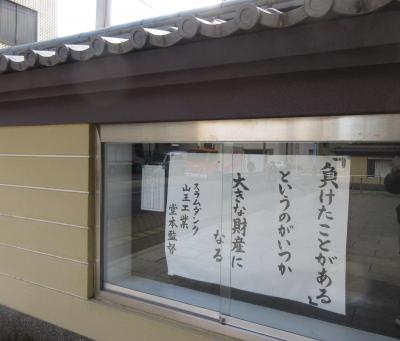 「負けたことがある」
というのがいつか
大きな財産に
なる
スラムダンク
山王工業
堂本監督